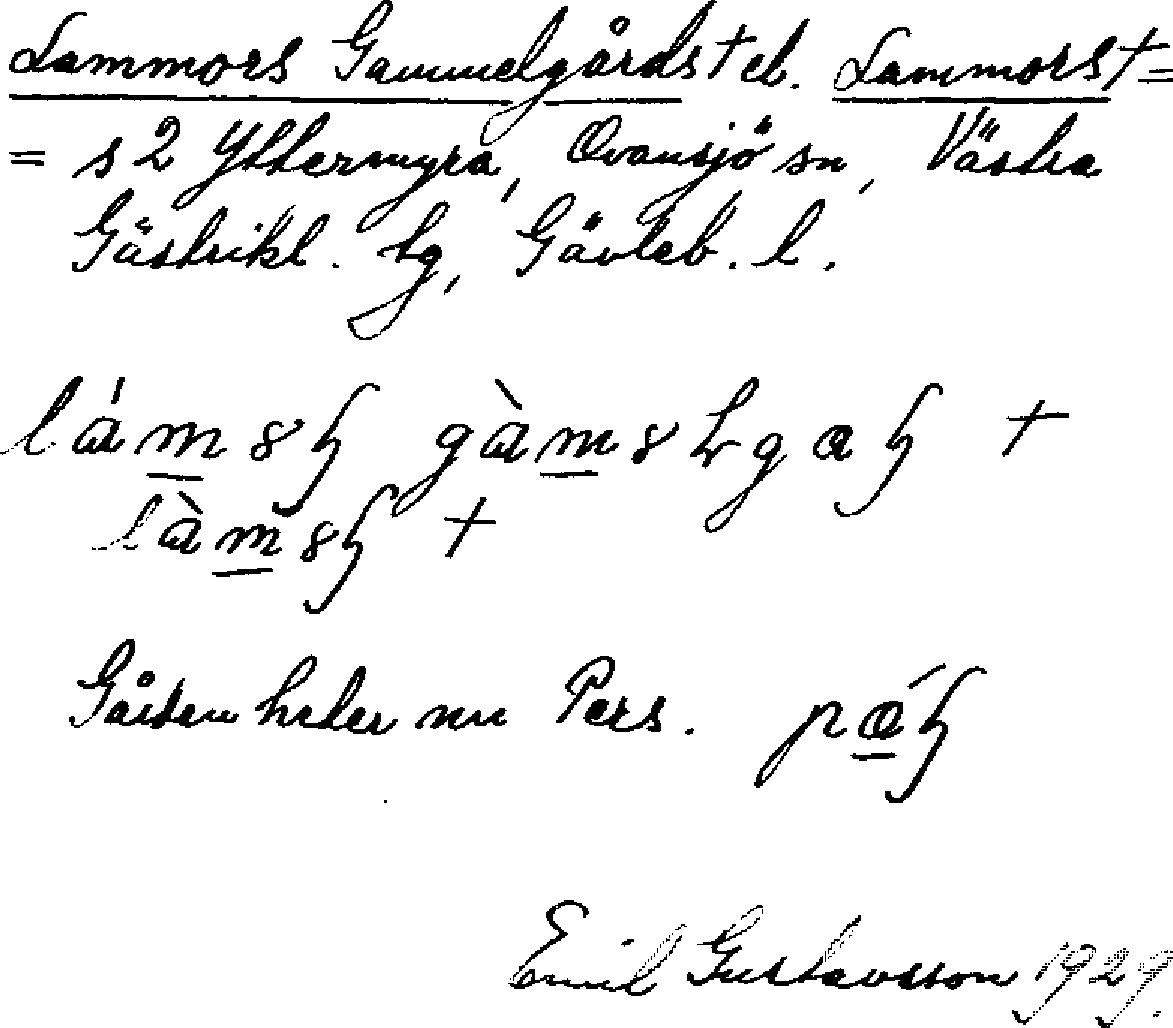 Lammors Gammelgårds† el. Lammors† =
= s 2 Yttermyra, Ovansjö sn, Västra
Gästrikl. tg, Gävleb. l.
Gården heter nu Pers.
Emil Gustavsson 1929.